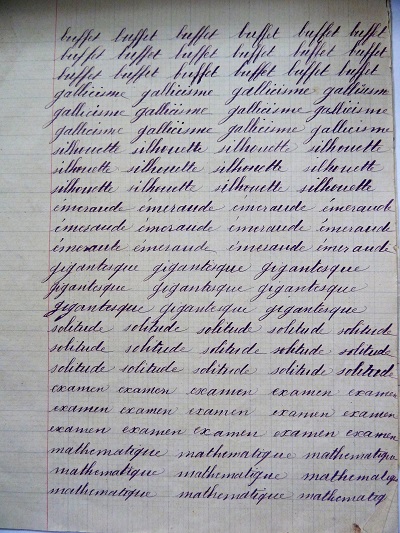 buffet buffet buffet buffet buffet buffet
buffet buffet buffet buffet buffet buffet
buffet buffet buffet buffet buffet buffet
gallicisme gallicisme gallicisme gallicisme
gallicisme gallicisme gallicisme gallicisme
gallicisme gallicisme gallicisme gallicisme
silhouette silhouette silhouette silhouette
silhouette silhouette silhouette silhouette
silhouette silhouette silhouette silhouette
émeraude émeraude émeraude émeraude
émeraude émeraude émeraude émeraude
émeraude émeraude émeraude émeraude
gigantesque gigantesque gigantesque
gigantesque gigantesque gigantesque
gigantesque gigantesque gigantesque
solitude solitude solitude solitude solitude
solitude solitude solitude solitude solitude
solitude solitude solitude solitude solitude
examen examen examen examen examen
examen examen examen examen examen
examen examen examen examen examen
mathematique mathematique mathematique
mathematique mathematique mathematique
mathematique mathematique mathematiq